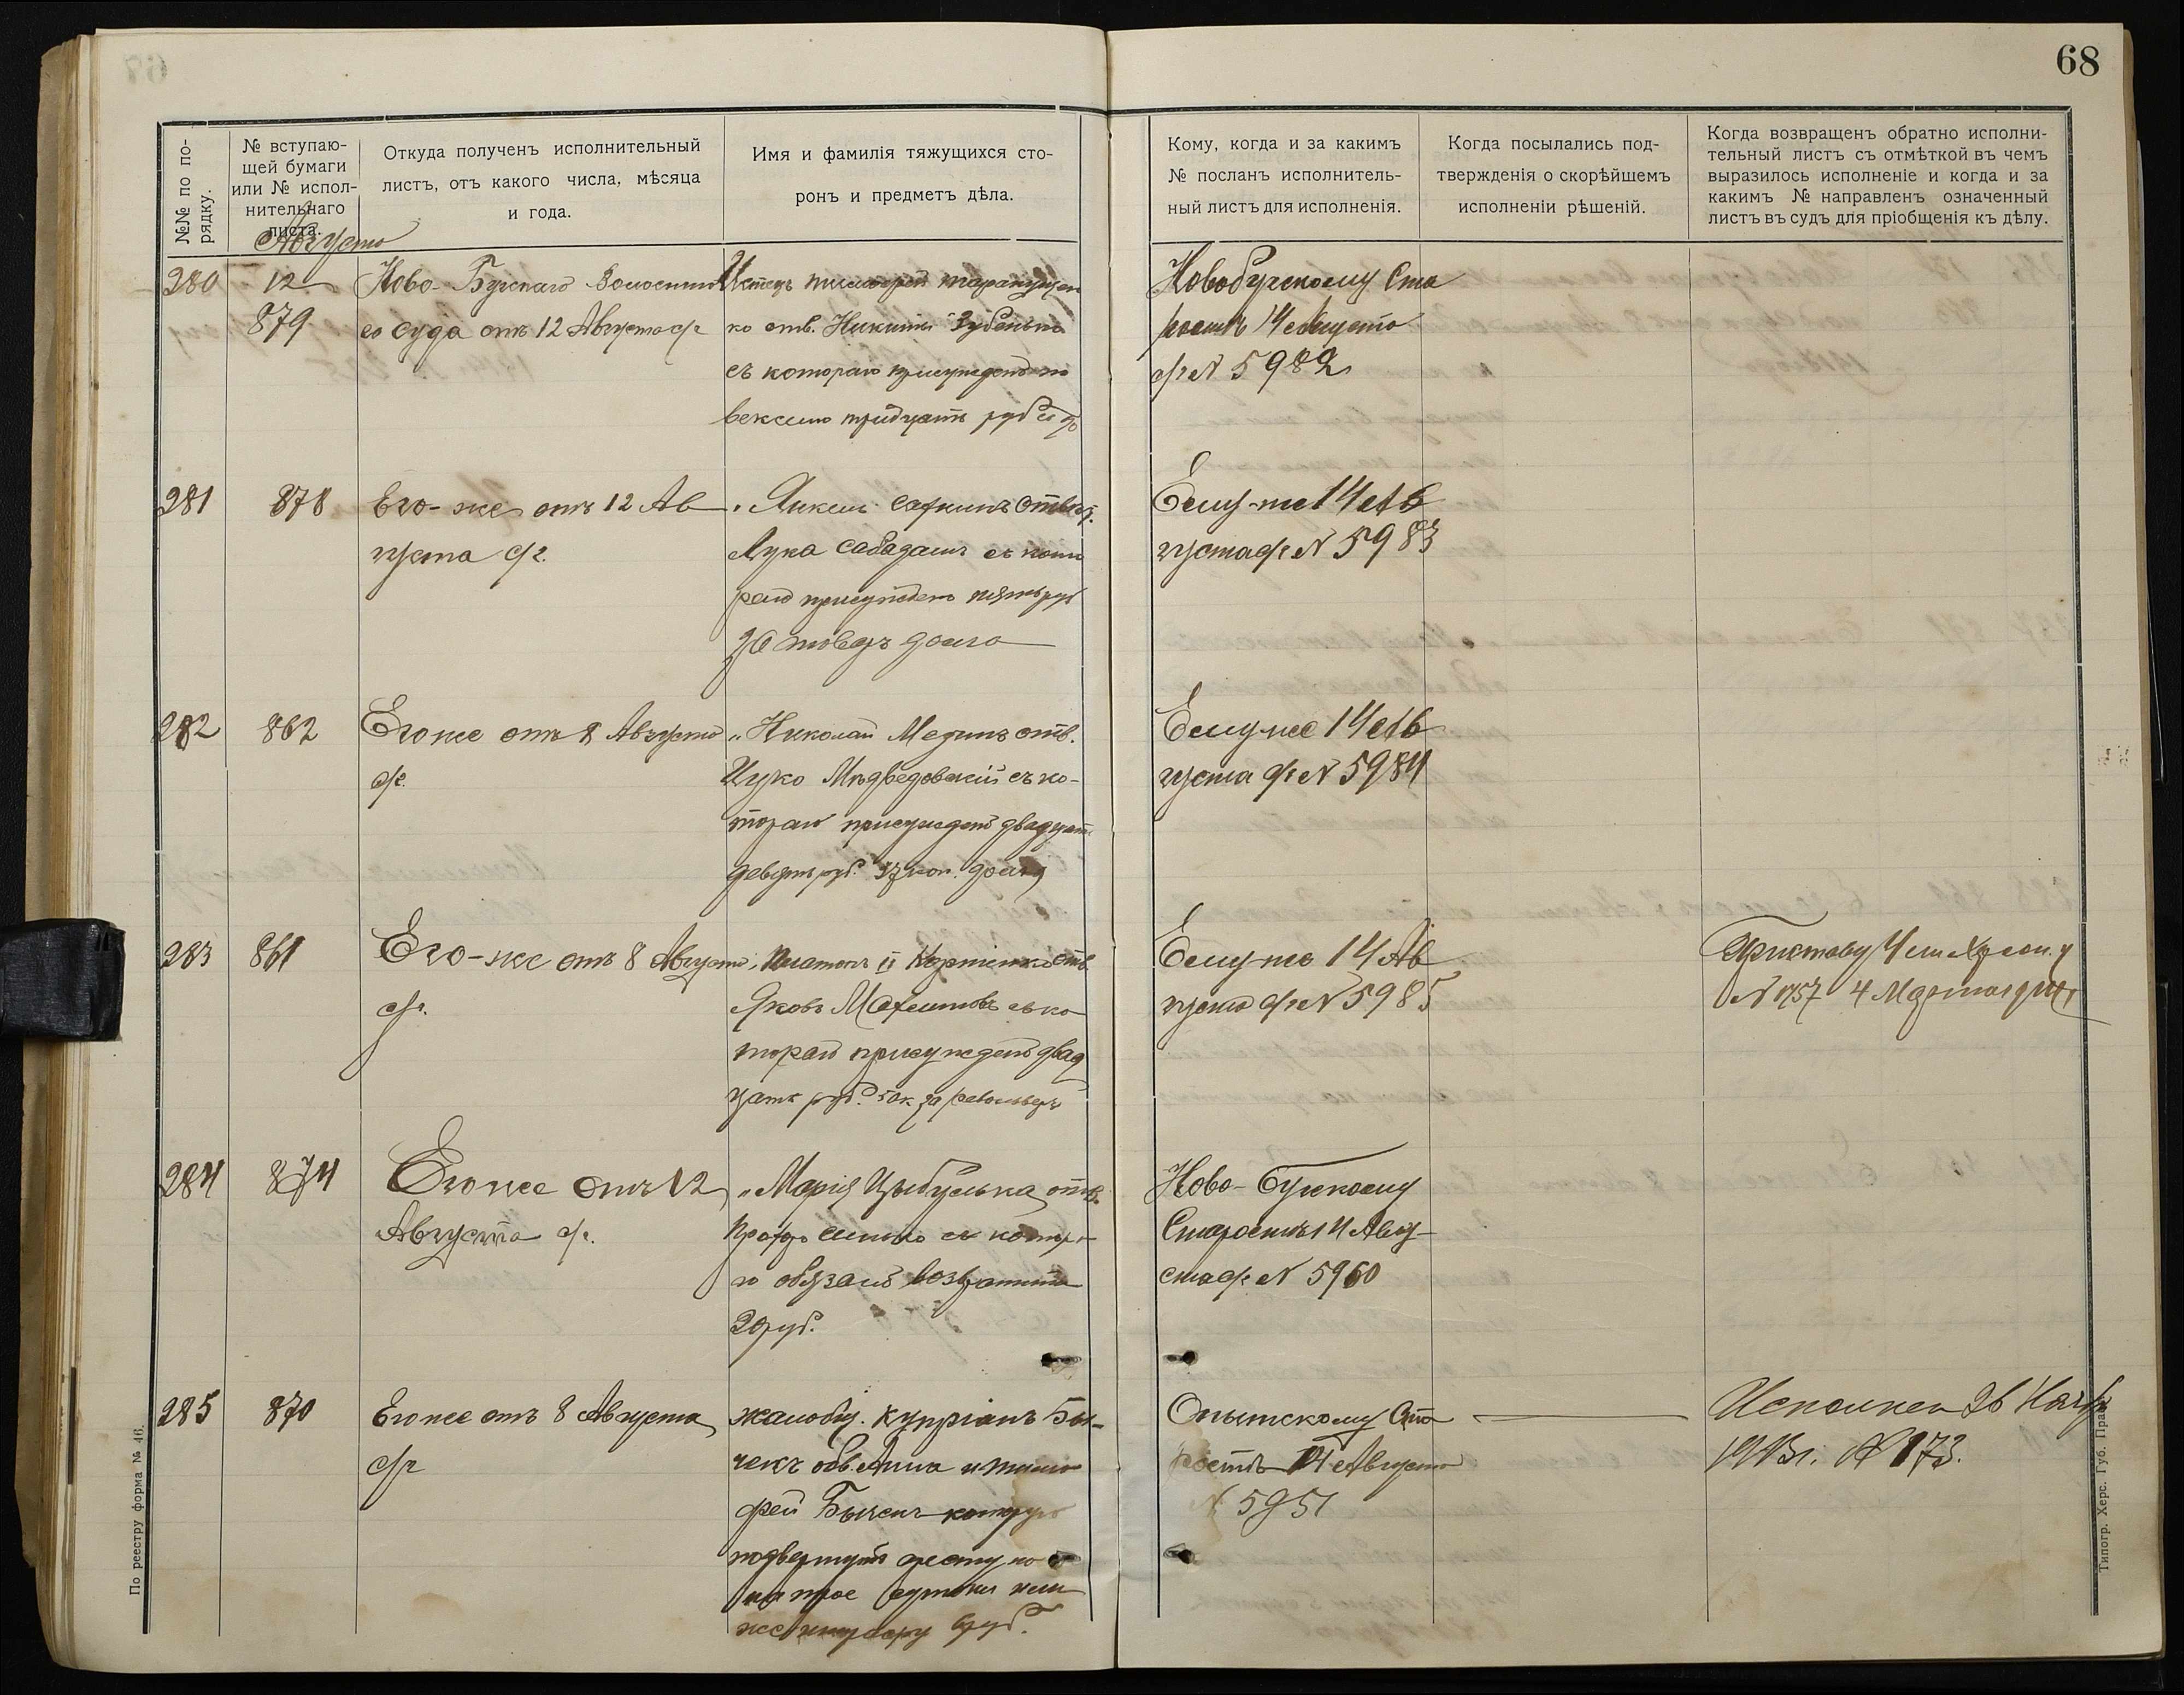 68
№№ по по-
рядку.
№ вступаю-
щей бумаги
или № испол-
нительнаго
листа.
Откуда полученъ исполнительный
листъ, отъ какого числа, мѣсяца
и года.
Имя и фамилія тяжущихся сто-
ронъ и предметъ дѣла.
Кому, когда и за какимъ
№ посланъ исполнитель-
ный листъ для исполненія.
Когда посылались под-
твержденія о скорѣйшемъ
исполненіи рѣшеній.
Когда возвращенъ обратно исполни-
тельный листъ съ отмѣткой въ чемъ
выразилось исполненіе и когда и за
какимъ № направленъ означенный
листъ въ судъ для пріобщенія къ дѣлу.
Августа
280
12
879
Ново-Бугскаго Волостно
го Суда отъ 12 Августа с/г
Истецъ
ко отв. Никита Зубенько
съ котораго присужденно
векселю тридцать руб и %
Новобугскому Ста
ростѣ 14 Августа
с/г № 5982
281
878
Его-же отъ 12 Ав
густа с/г.
отвѣт.
Лука Сабадашъ съ кото
раго присуждено пять руб
за товаръ долга
Ему-же 14 Ав
густа с/г № 5983
282
862
Егоже отъ 8 Августа
с/г.
„Николай отв.
Ицко Мѣдведовскій съ ко-
тораго присуждено двадцать
девять руб. коп. долга
Ему же 14 Ав
густа с/г № 5984
283
861
Его-же отъ 8 Августа
с/г.
Платонъ отв.
Яковъ съ ко
тораго присуждено двад
цать руб. 50 к за револьверъ
Ему же 14 Ав
густа с/г № 5985
Приставу 4
4 Марта
284
874
Егоже отъ 12
Августа с/г.
„Марія Цыбулька отв.
съ котора
го обязано возвратить
20 руб.
Ново-Бугскому
Старостѣ 14 Авгу-
ста с/г № 5960
285
870
Егоже отъ 8 Августа
с/г
жалобщ. Купріанъ Бы-
чекъ обв. Анна и Тимо
фей Бычекъ которые
подвергнуты аресту по
на трое сутокъ или
же штрафу руб.
Ста
ростѣ 14 Августа
№ 5951
Исполнен 26
1913 г. № 173.
По реестру форма № 46.
Типогр. Херс. Губ. Прав.